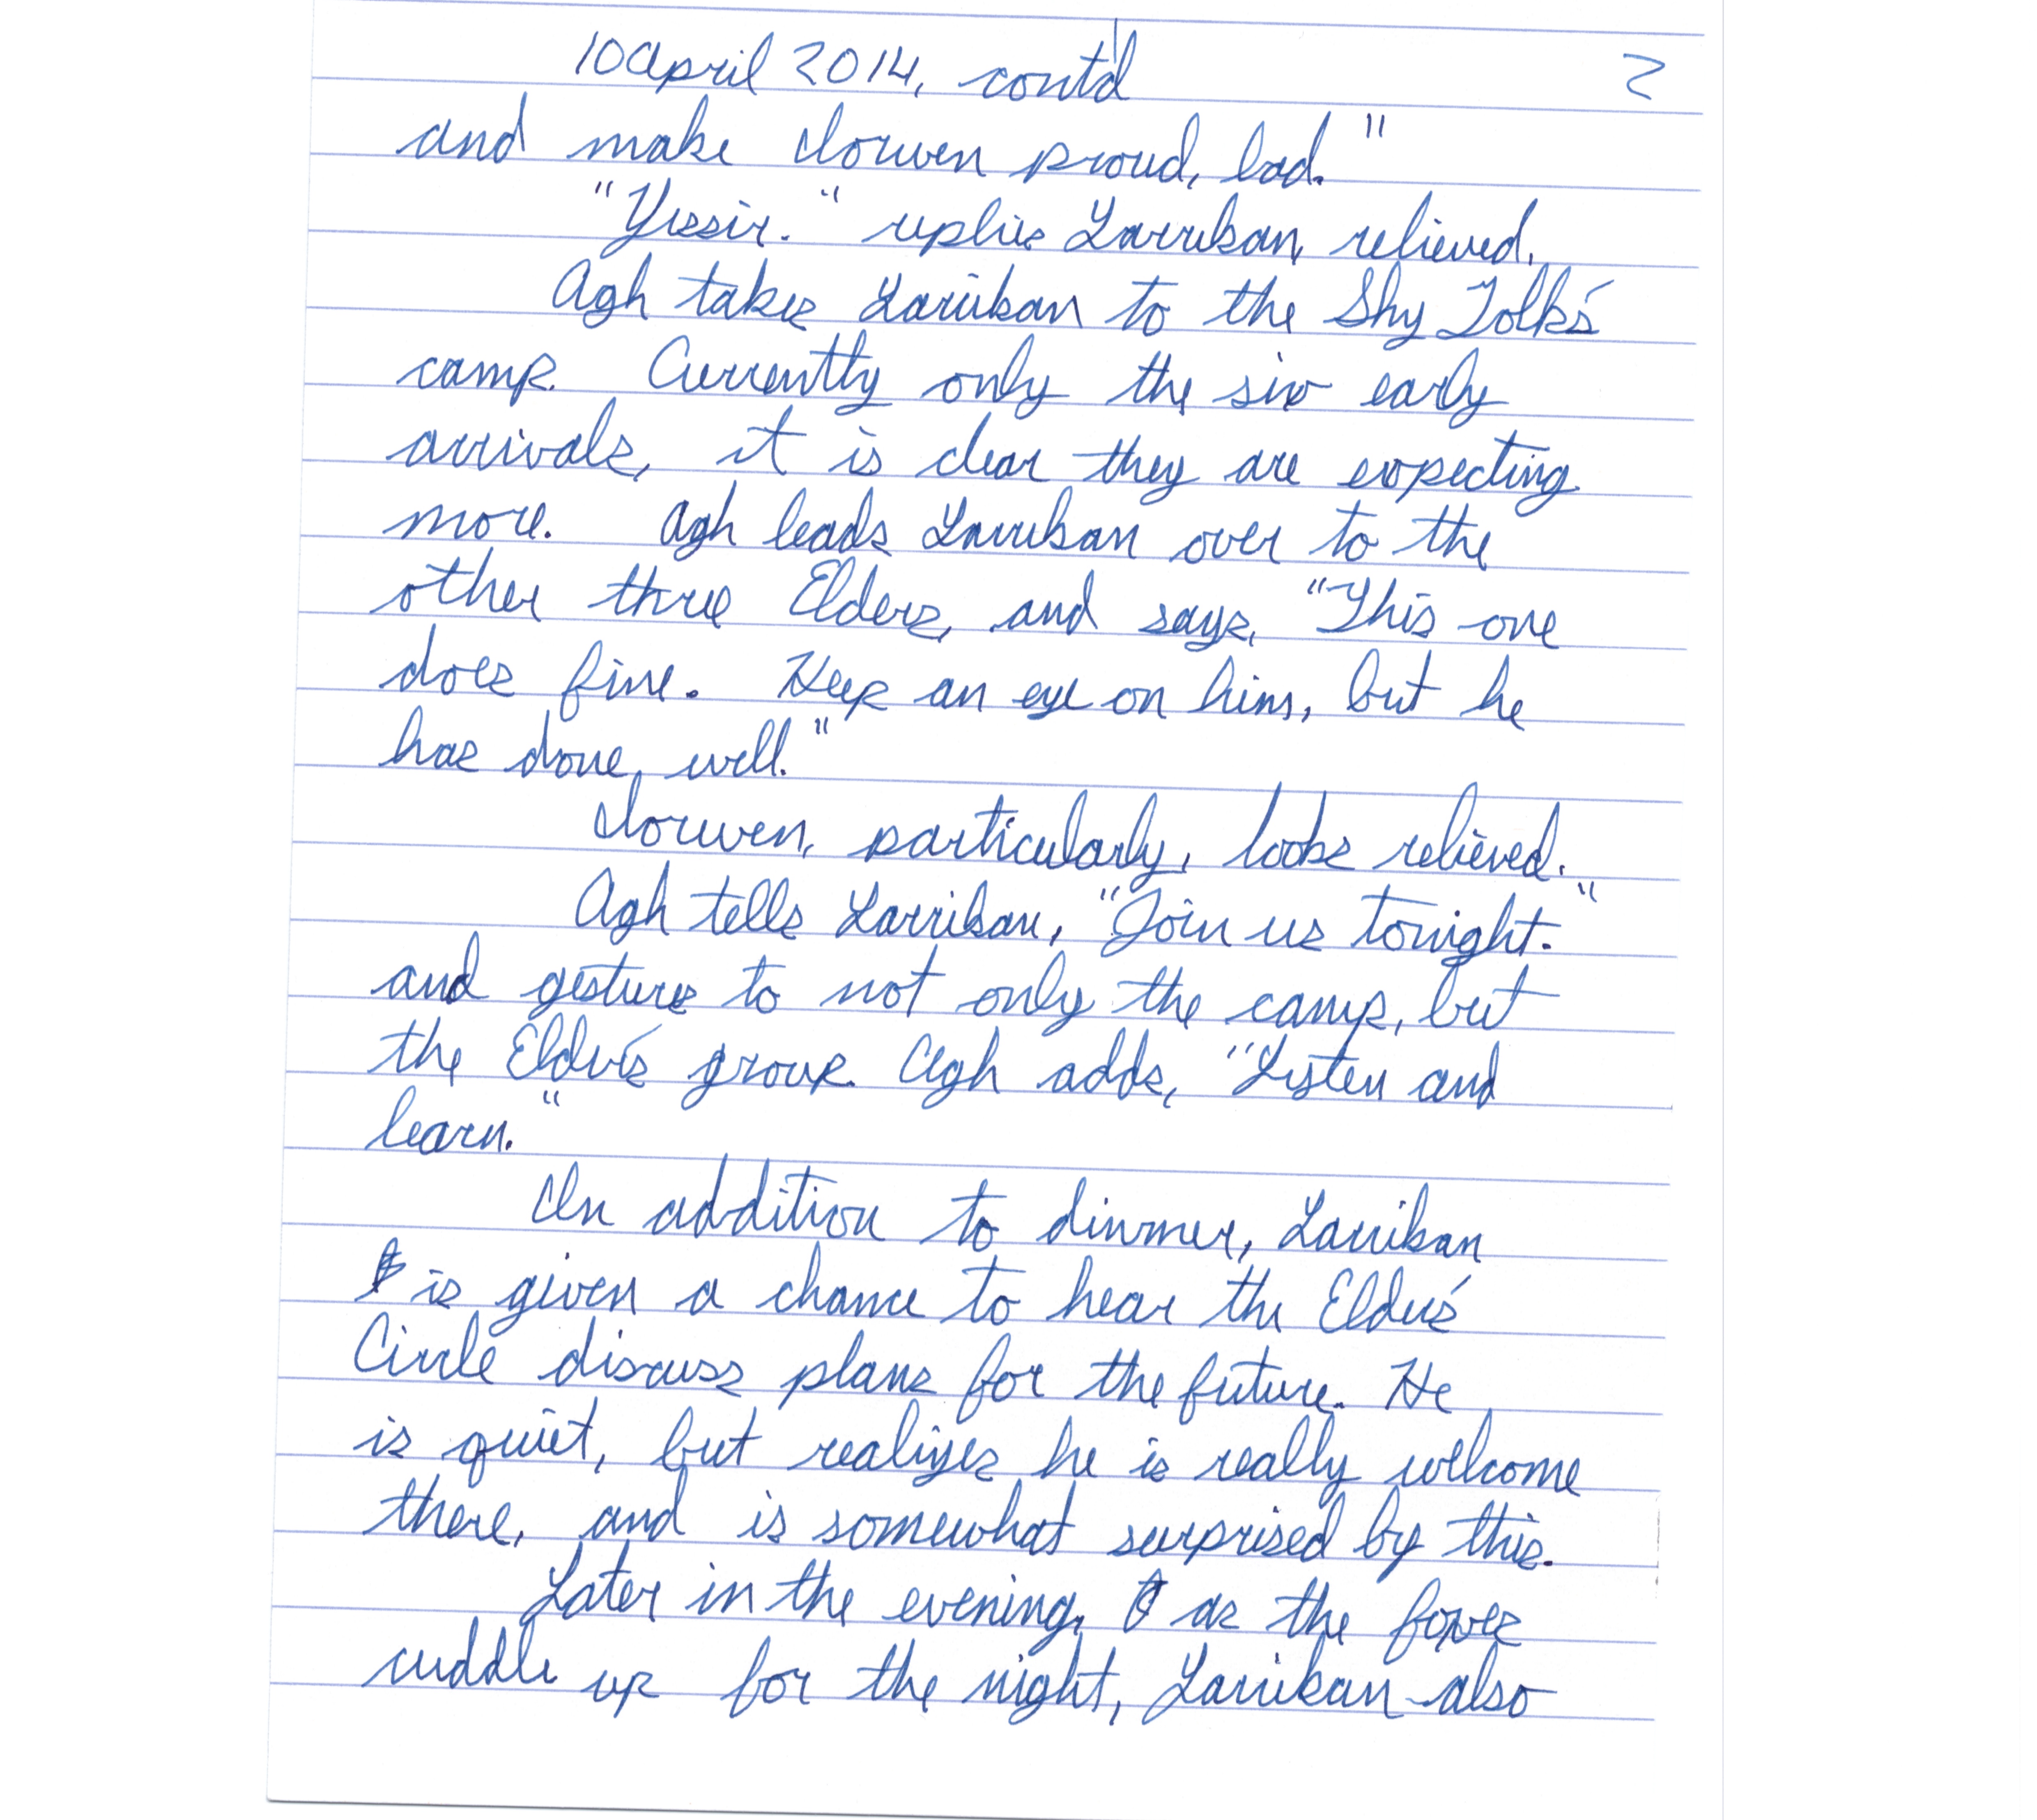 10 April 2014, cont'd 2
and make Iorwen proud, lad."
"Yessir." replies Larrikan, relieved.
Agh takes Larrikan to the Shy Folk's
camp. Currently only the six early
arrivals, it is clear they are expecting
more. Agh leads Larrikan over to the
other three Elders, and says, "This one
does fine. Keep an eye on him, but he
has done, well."
Iorwen, particularly, looks relieved.
Agh tells Larrikan, "Join us tonight."
and gestures to not only the camp, but
the Elder's group. Agh adds, "Listen and
learn."
In addition to dinner, Larrikan
is given a chance to hear the Elder's
Circle discuss plans for the future. He
is quiet, but realizes he is really welcome
there, and is somewhat surprised by this.
Later in the evening, as the foxes
cuddle up for the night, Larrikan also